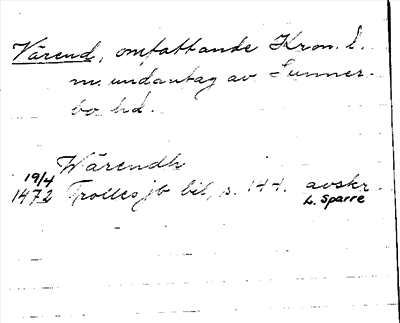 Värend, omfattande Kron. l.
m. undantag av Sunner-
bo hd.
Wärendh
19/4
1472 Trolles jb bil, s. 144. avskr.
L. Sparre